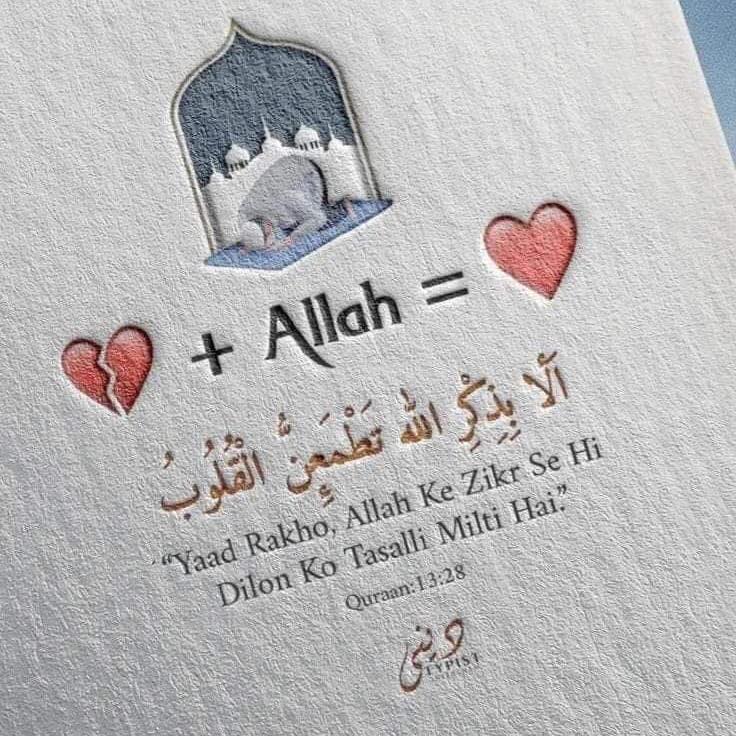 💔 + Allah = ❤️
اَلَا بِذِكْرِ الله تَطْمَئِنُّ الْقُلُوبُ
“Yaad Rakho, Allah Ke Zikr Se Hi
Dilon Ko Tasalli Milti Hai.”
Quraan:13:28
دینی
TYPIST